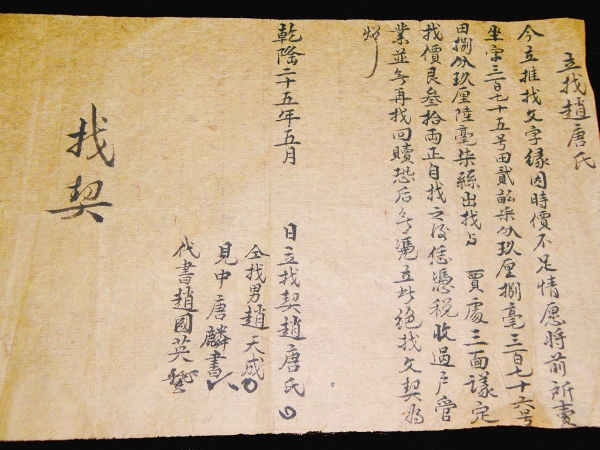 立找趙唐氏
今立推找文字緣因時價不足情愿將前所賣
坐字三百七十五号田貳畝柒分玖厘捌毫三百七十六号
田捌分玖厘陸毫柒絲出找与 賈處三面議定
找價艮叁拾両正自找之后恁憑税收過户管
業並無再找回贖恐后無憑立此絶找文契為
照
乾隆二十五年五月 日立找契趙唐氏
仝找男趙天成
見中唐麟書
代書趙國英
找契